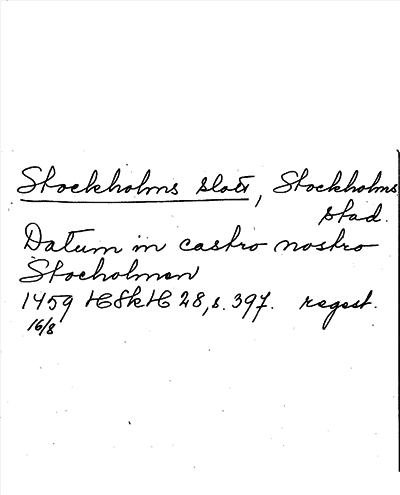 Stockholms slott, Stockholms
stad.
Datum in castro nostro
Stocholmen
1459 HSkH 28, s. 397. regest.
16/8